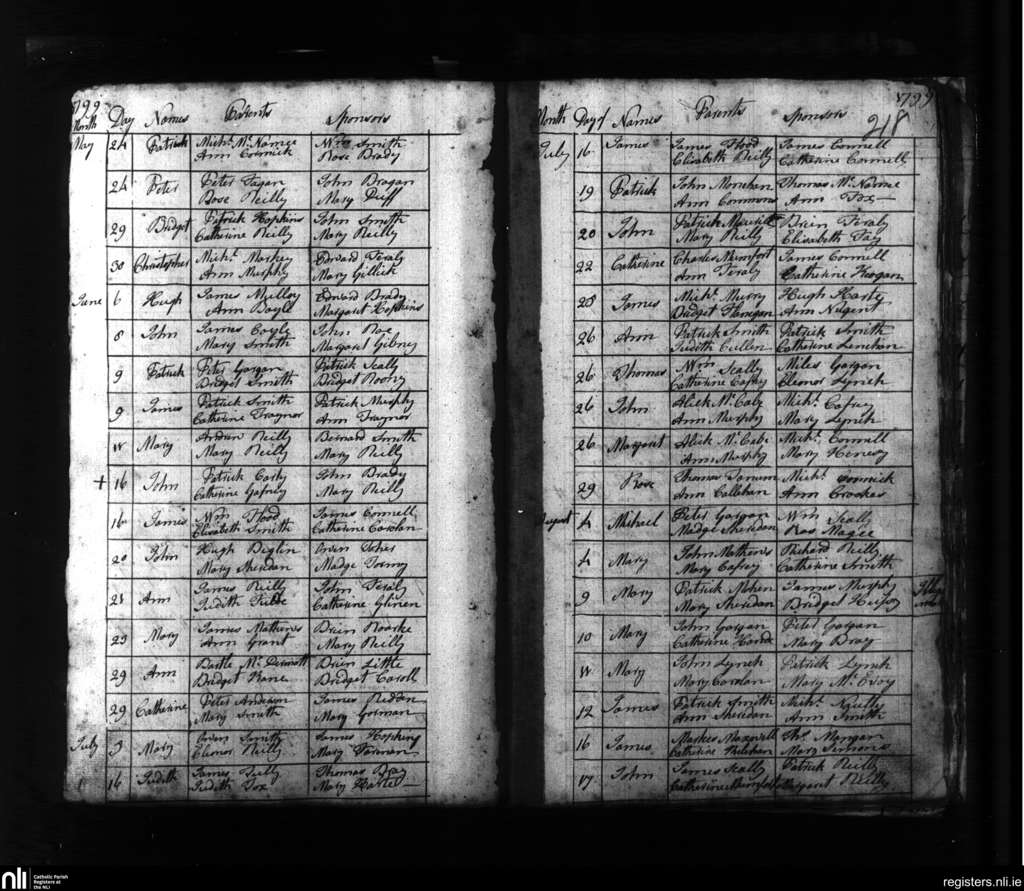 1799
Month Day Names Parents Sponsors
May 24 Patrick Michl. McNamee Wm Smith
Ann Cormick Rose Brady
24 Peter Peter Fagan John Brogan
Rose Reilly Mary Duff
29 Bridget Patrick Hopkins John Smith
Catherine Reilly Mary Reilly
30 Christopher Michl. Markey Edward Feraly
Ann Murphy Mary Gillick
June 6 Hugh James Mulloy Edward Brady
Ann Boyle Margaret Hopkins
8 John James Coyle John Roe
Mary Smith Margaret Gibney
9 Patrick Peter Gargan Patrick Scally
Bridget Smith Bridget Roony
9 James Patrick Smith Patrick Murphy
Catherine Traynor Ann Traynor
11 Mary Andrew Reilly Bernard Smith
Mary Reilly Mary Reilly
+ 16 John Patrick John Brady
Catherine Gafney Mary Reilly
16 James Wm Flood James Connell
Elisabeth Smith Catherine Carolan
20 John Hugh Beglin Owen
Mary Sheridan Madge
21 Ann James Reilly John Feraly
Judith Catherine
23 Mary James Mathews Brien Roarke
Ann Grant Mary Reilly
29 Ann Bartle McDermott Brien Little
Bridget Kane Bridget Caroll
29 Catherine Peter Anderson James Reddin
Mary Smith Mary Gorman
July 3 Mary Owen Smith James Hopkins
Elionor Reilly Mary
16 Judith James Tully Thomas Bray
Judith Fox Mary
1799
218
Month Day of Names Parents Sponsors
July 16 James James Flood James Connell
Elisabeth Reilly Catherine Connell
19 Patrick John Monehan Thomas McNamee
Ann Commons Ann Fox
20 John Patrick Brien Feraly
Mary Reilly Elisabeth Fay
22 Catherine Charles Mumfort James Connell
Ann Feraly Catherine Keogan
25 James Michl. Murry Hugh Harte
Bridget Flanegan Ann Nugent
26 Ann Patrick Smith Patrick Smith
Judith Cullen Catherine Lenehan
26 Thomas Wm Scally Miles Gargan
Catherine Cafrey Elenor Lynch
26 John Alick McCabe Michl. Cafrey
Ann Murphy Mary Lynch
26 Margaret Alick McCabe Michl. Connell
Ann Murphy Mary
29 Rose Thomas Michl. Cormick
Ann Callehan Ann Crookes
August 4 Micheel Peter Gargan Wm Scally
Madge Sheridan Rose Magee
4 Mary John Mathews Richard Reilly
Mary Cafrey Catherine Smith
9 Mary Patrick James Murphy
Mary Sheridan Bridget
10 Mary John Gargan Peter Gargan
Catherine Mary Bray
11 Mary John Lynch Patrick Lynch
Mary Carolan Mary McEvoy
12 James Patrick Smith Michl. Reilly
Ann Sheridan Ann Smith
16 James Markes Maxwell Thos. Mangan
Catherine Mary Simons
17 John James Scally Patrick Reilly
Catherine Mumfort Margaret Reilly
nli Catholic Parish
Registers at
the NLI
registers.nli.ie